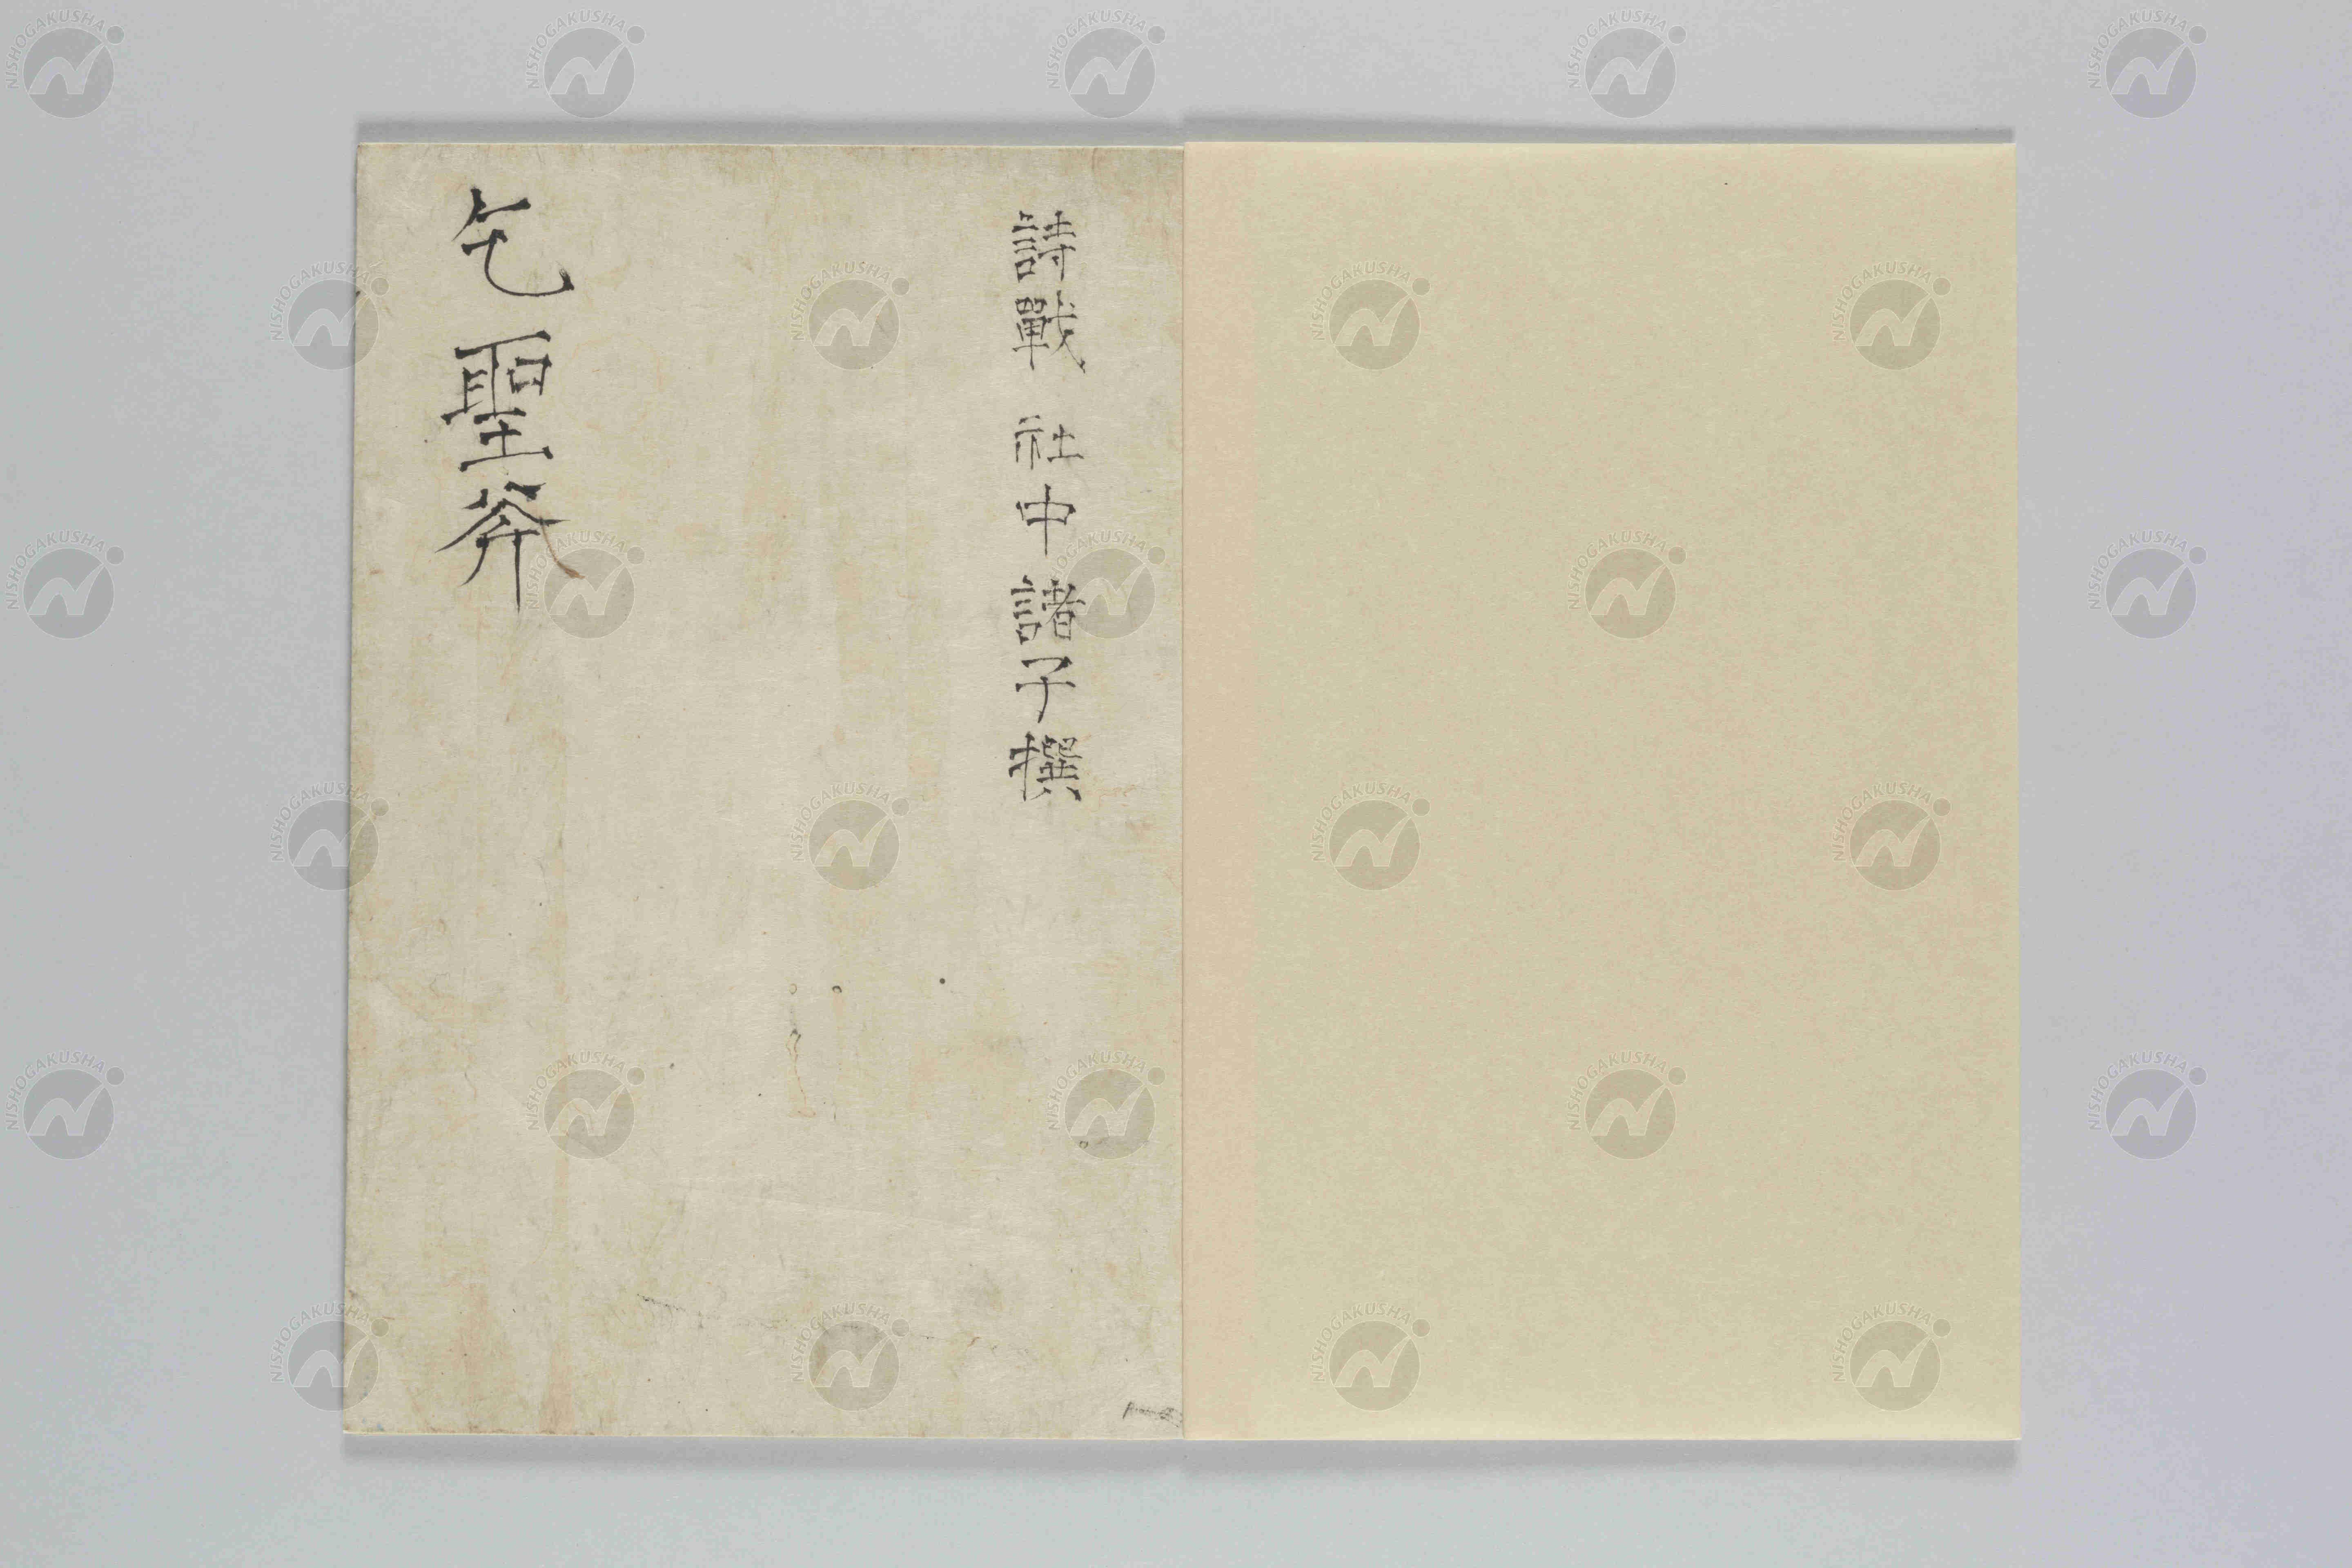 詩戰 社中諸子撰
乞聖斧
NISHOGAKUSHA